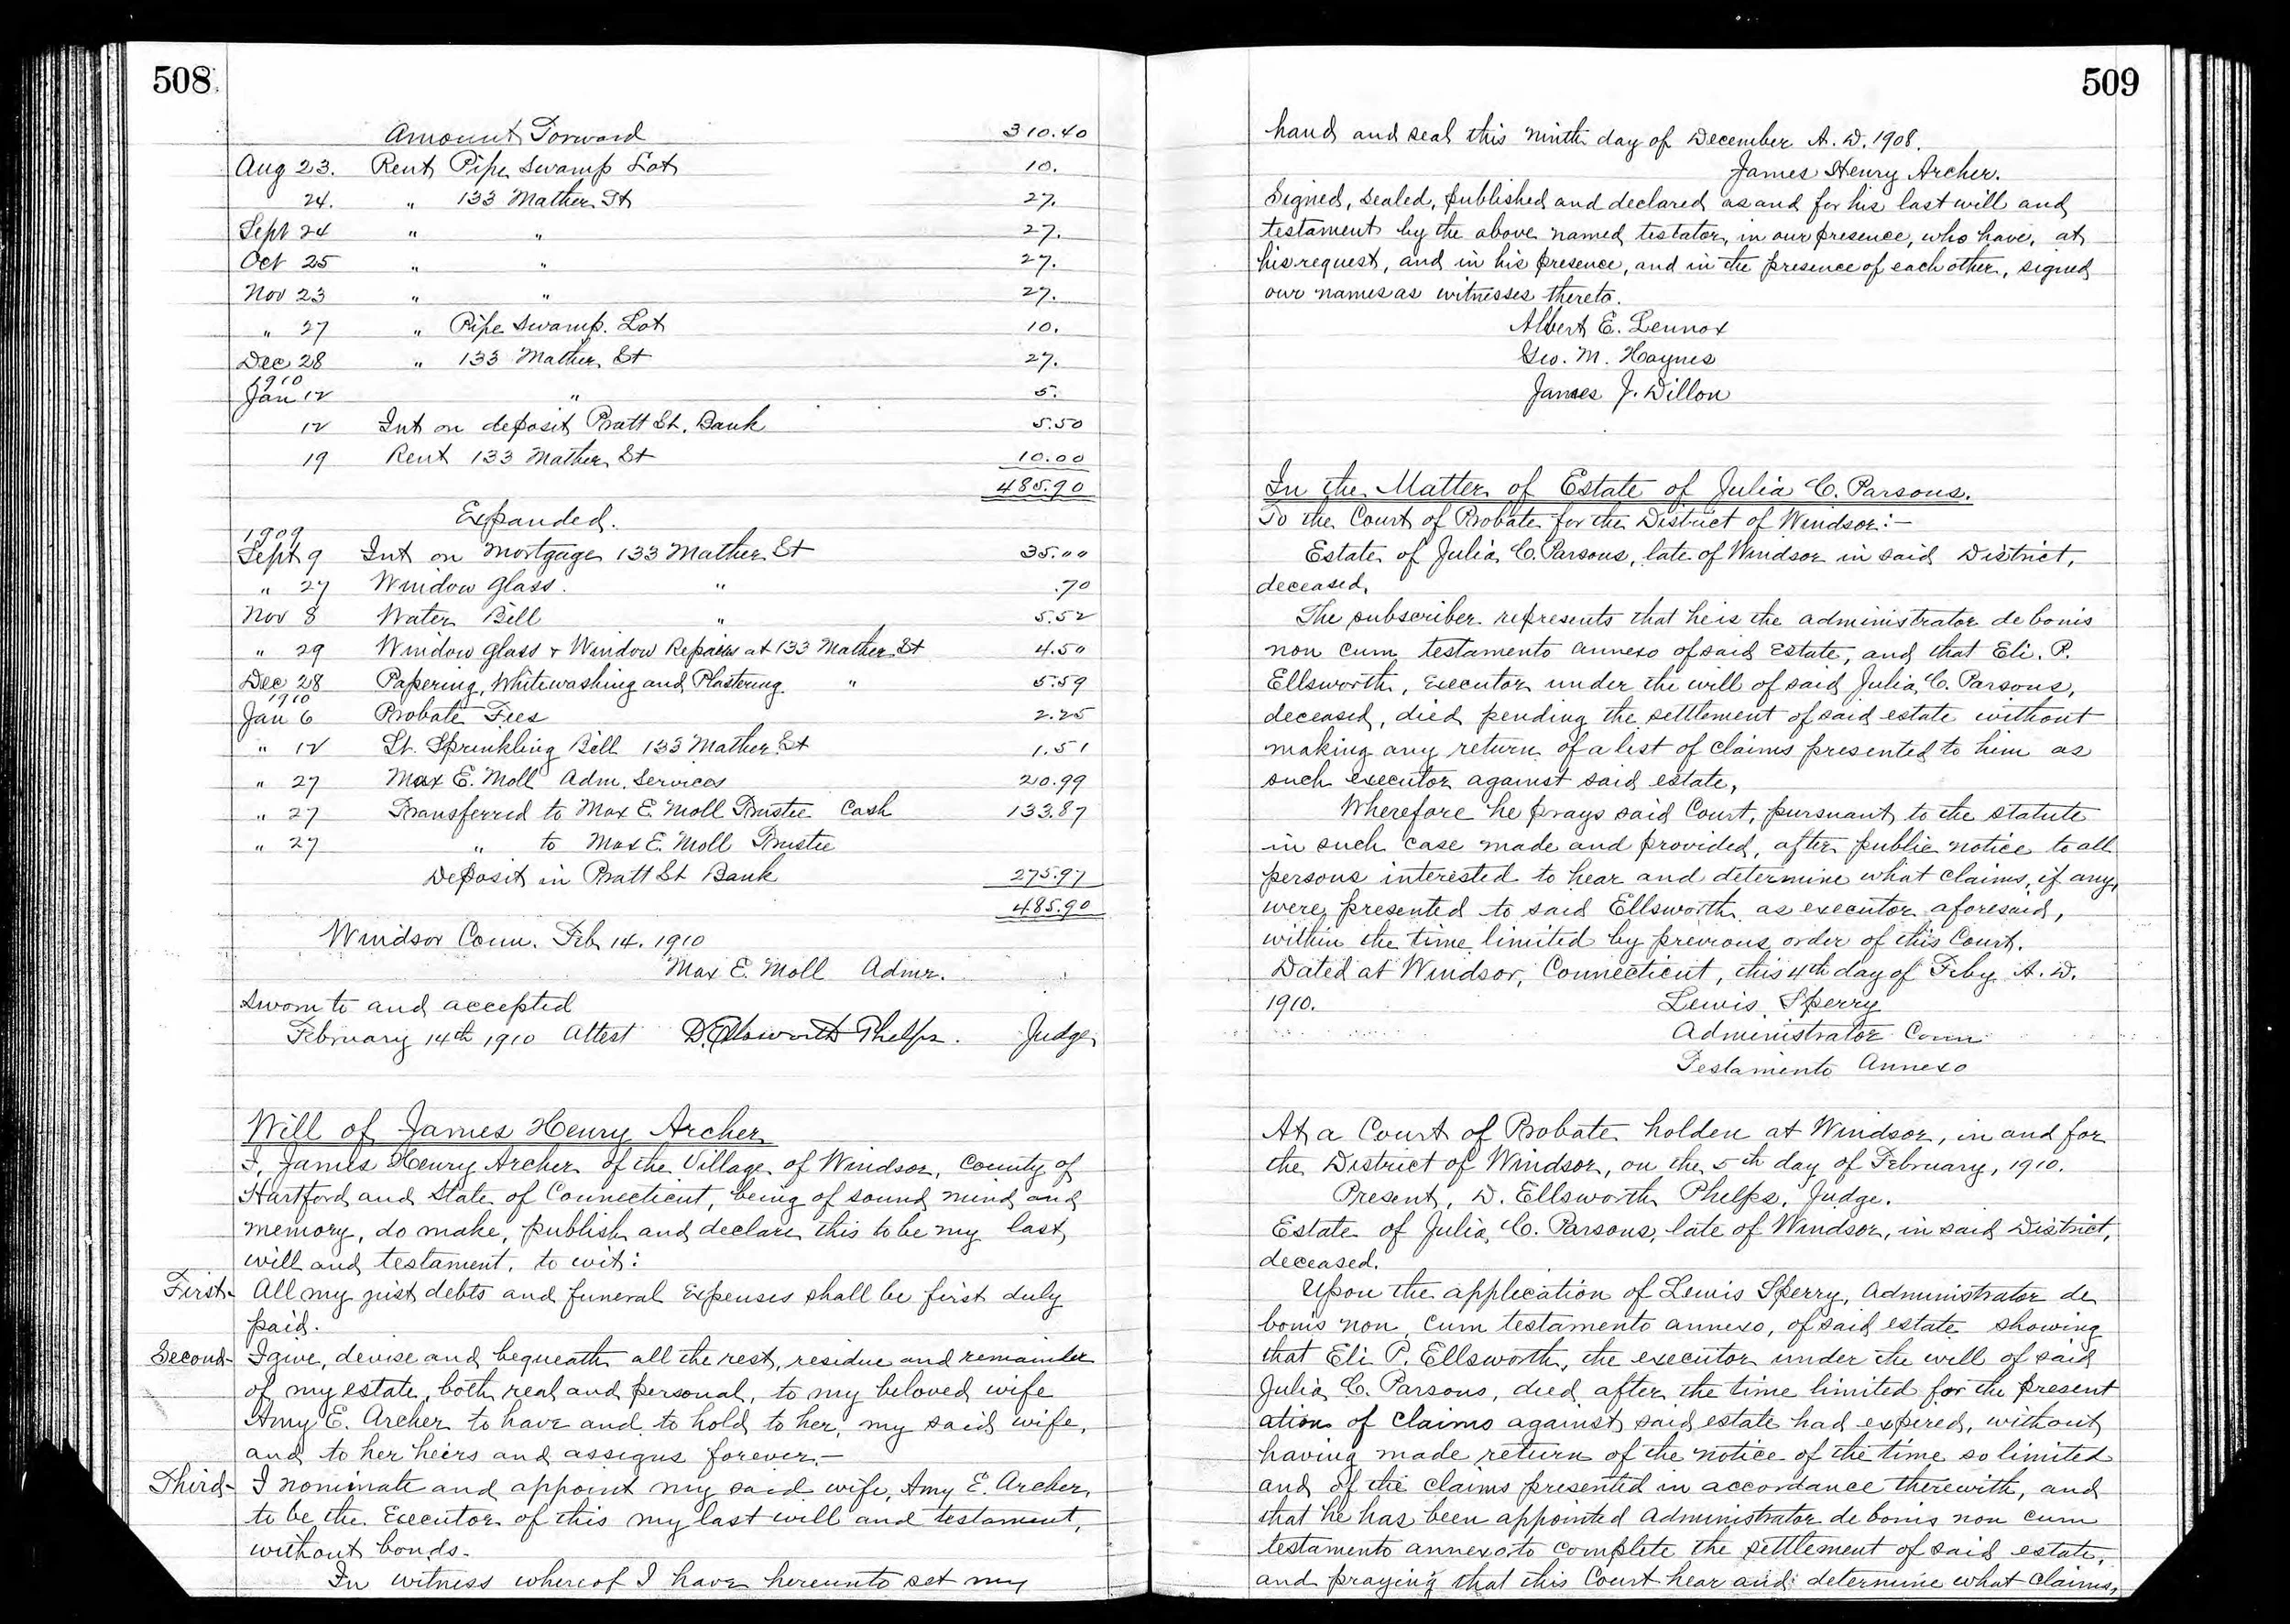 508
Amount Forward 310.40
Aug 23. Rent Pipe Swamp Lot 10.
24. " 133 Mather St 27.
Sept 24 " " 27.
Oct 25 " " 27.
Nov 23 " " 27.
" 27 " Pipe Swamp. Lot 10.
Dec 28 " 133 Mather St 27.
1910
Jan 12 " 5.
12 Int on deposit Pratt St. Bank 5.50
19 Rent 133 Mather St 10.00
485.90
Expended.
1909
Sept 9 Int on Mortgage 133 Mather St 35.00
" 27 Window Glass. " .70
Nov 8 Water Bill " 5.52
" 29 Window Glass & Window Repairs at 133 Mather St 4.50
Dec 28 Papering, Whitewashing and Plastering " 5.59
1910
Jan 6 Probate Fees 2.25
" 12 St. Sprinkling Bill 133 Mather St 1.51
" 27 Max E. Moll Adm. Services 20.99
" 27 Transferred to Max E. Moll Trustee Cash 133.87
" 27 " to Max E. Moll Trustee
Deposit in Pratt St Bank 275.97
485.90
Windsor Conn. Feb 14. 1910
Max E. Moll Admr.
Sworn to and accepted
February 14th 1910 Attest D. Ellsworth Phelps. Judge
Will of James Henry Archer
I, James Henry Archer of the Village of Windsor, County of
Hartford and State of Connecticut, being of sound mind and
memory, do make, publish and declare this to be my last
will and testament, to wit:
First- All my just debts and funeral expenses shall be first duly
paid.
Second- I give, devise and bequeath all the rest, residue and remainder
of my estate, both real and personal, to my beloved wife
Amy E. Archer to have and to hold to her, my said wife,
and to her heirs and assigns forever.-
Third- I nominate and appoint my said wife, Amy E. Archer,
to be the Executor of this my last will and testament,
without bonds.
In witness whereof I have hereunto set my
509
hand and seal this ninth day of December A. D. 1908.
James Henry Archer.
Signed, sealed, published and declared as and for his last will and
testament by the above named testator, in our presence, who have, at
his request, and in his presence, and in the presence of each other, signed
our names as witnesses thereto.
Albert E. Lennox
Geo. M. Haynes
James J. Dillon
In the Matter of Estate of Julia C. Parsons.
To the Court of Probate for the District of Windsor:-
Estate of Julia C. Parsons, late of Windsor in said District,
deceased.
The subscriber represents that he is the administrator de bonis
non cum testamento annexo of said Estate, and that Eli. P.
Ellsworth, executor under the will of said Julia C. Parsons,
deceased, died pending the settlement of said estate without
making any return of a list of claims presented to him as
such executor against said estate,
Wherefore he prays said Court, pursuant to the statute
in such case made and provided, after public notice to all
persons interested to hear and determine what claims, if any,
were presented to said Ellsworth as executor aforesaid,
within the time limited by previous order of this Court.
Dated at Windsor, Connecticut, this 4th day of Feby A. D.
1910. Lewis Sperry
Administrator Cum
Testamento Annexo
At a Court of Probate holden at Windsor, in and for
the District of Windsor, on the 5th day of February, 1910.
Present, D. Ellsworth Phelps, Judge.
Estate of Julia C. Parsons, late of Windsor, in said District,
deceased.
Upon the application of Lewis Sperry, Administrator de
bonis non, cum testamento annexo, of said estate showing
that Eli P. Ellsworth, the executor under the will of said
Julia C. Parsons, died after the time limited for the present
ation of claims against said estate had expired, without
having made return of the notice of the time so limited
and of the claims presented in accordance therewith, and
that he has been appointed Administrator de bonis non cum
testamento annexo to complete the settlement of said estate,
and praying that this Court hear and determine what claims,